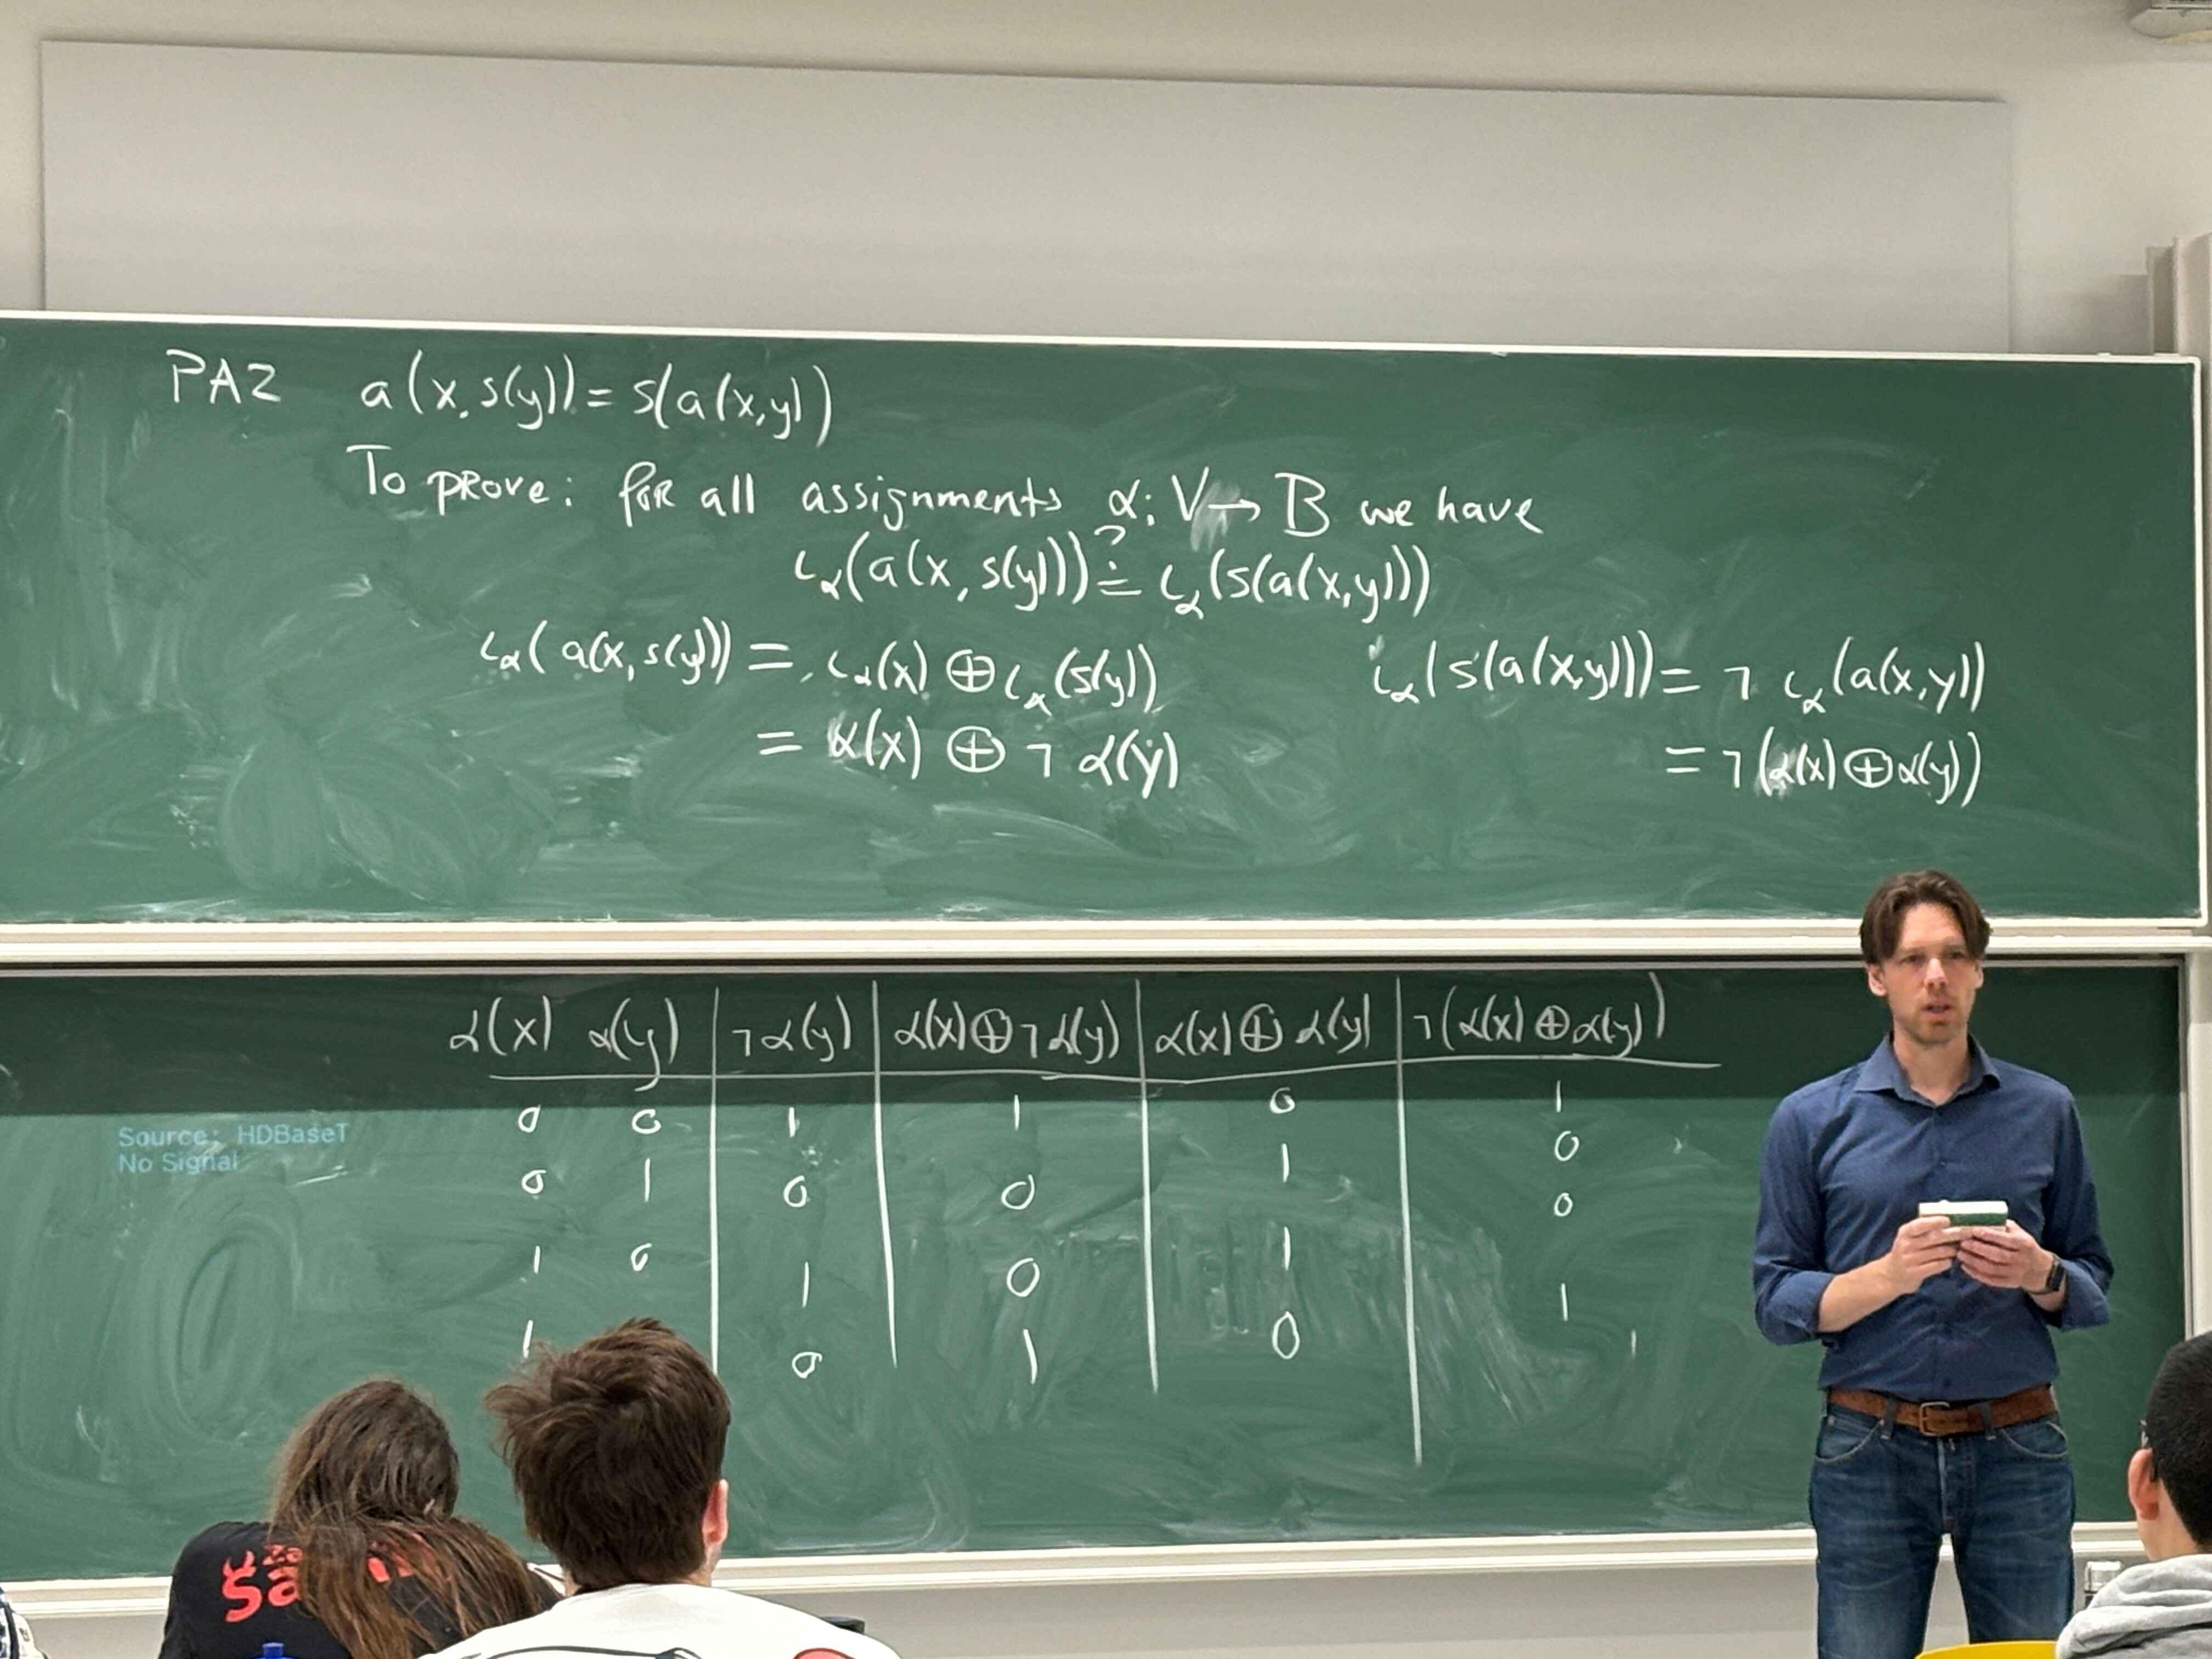 PA2 a(x, s(y)) = s(a(x,y))
To prove: for all assignments α: V → B we have
ια(a(x, s(y))) ≟ ια(s(a(x,y)))
ια(a(x, s(y))) = ια(x) ⊕ ια(s(y)) ια(s(a(x,y))) = ¬ ια(a(x,y))
= α(x) ⊕ ¬ α(y) = ¬(α(x) ⊕ α(y))
α(x) α(y) ¬α(y) α(x)⊕¬α(y) α(x)⊕α(y) ¬(α(x)⊕α(y))
0 0 1 1 0 1
0 1 0 0 1 0
1 0 1 0 1 0
1 0 1 0 1
Source: HDBaseT
No Signal